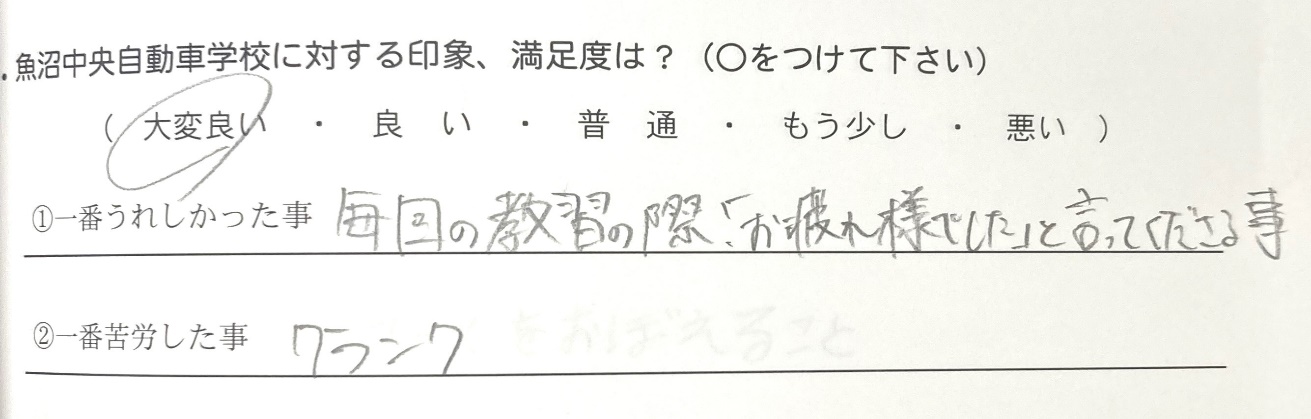 .魚沼中央自動車学校に対する印象、満足度は？（〇をつけて下さい）
（ 大変良い ・ 良 い ・ 普 通 ・ もう少し ・ 悪い ）
①一番うれしかった事 毎回の教習の際、「お疲れ様でした」と言ってくださる事
②一番苦労した事 クランク をおぼえること